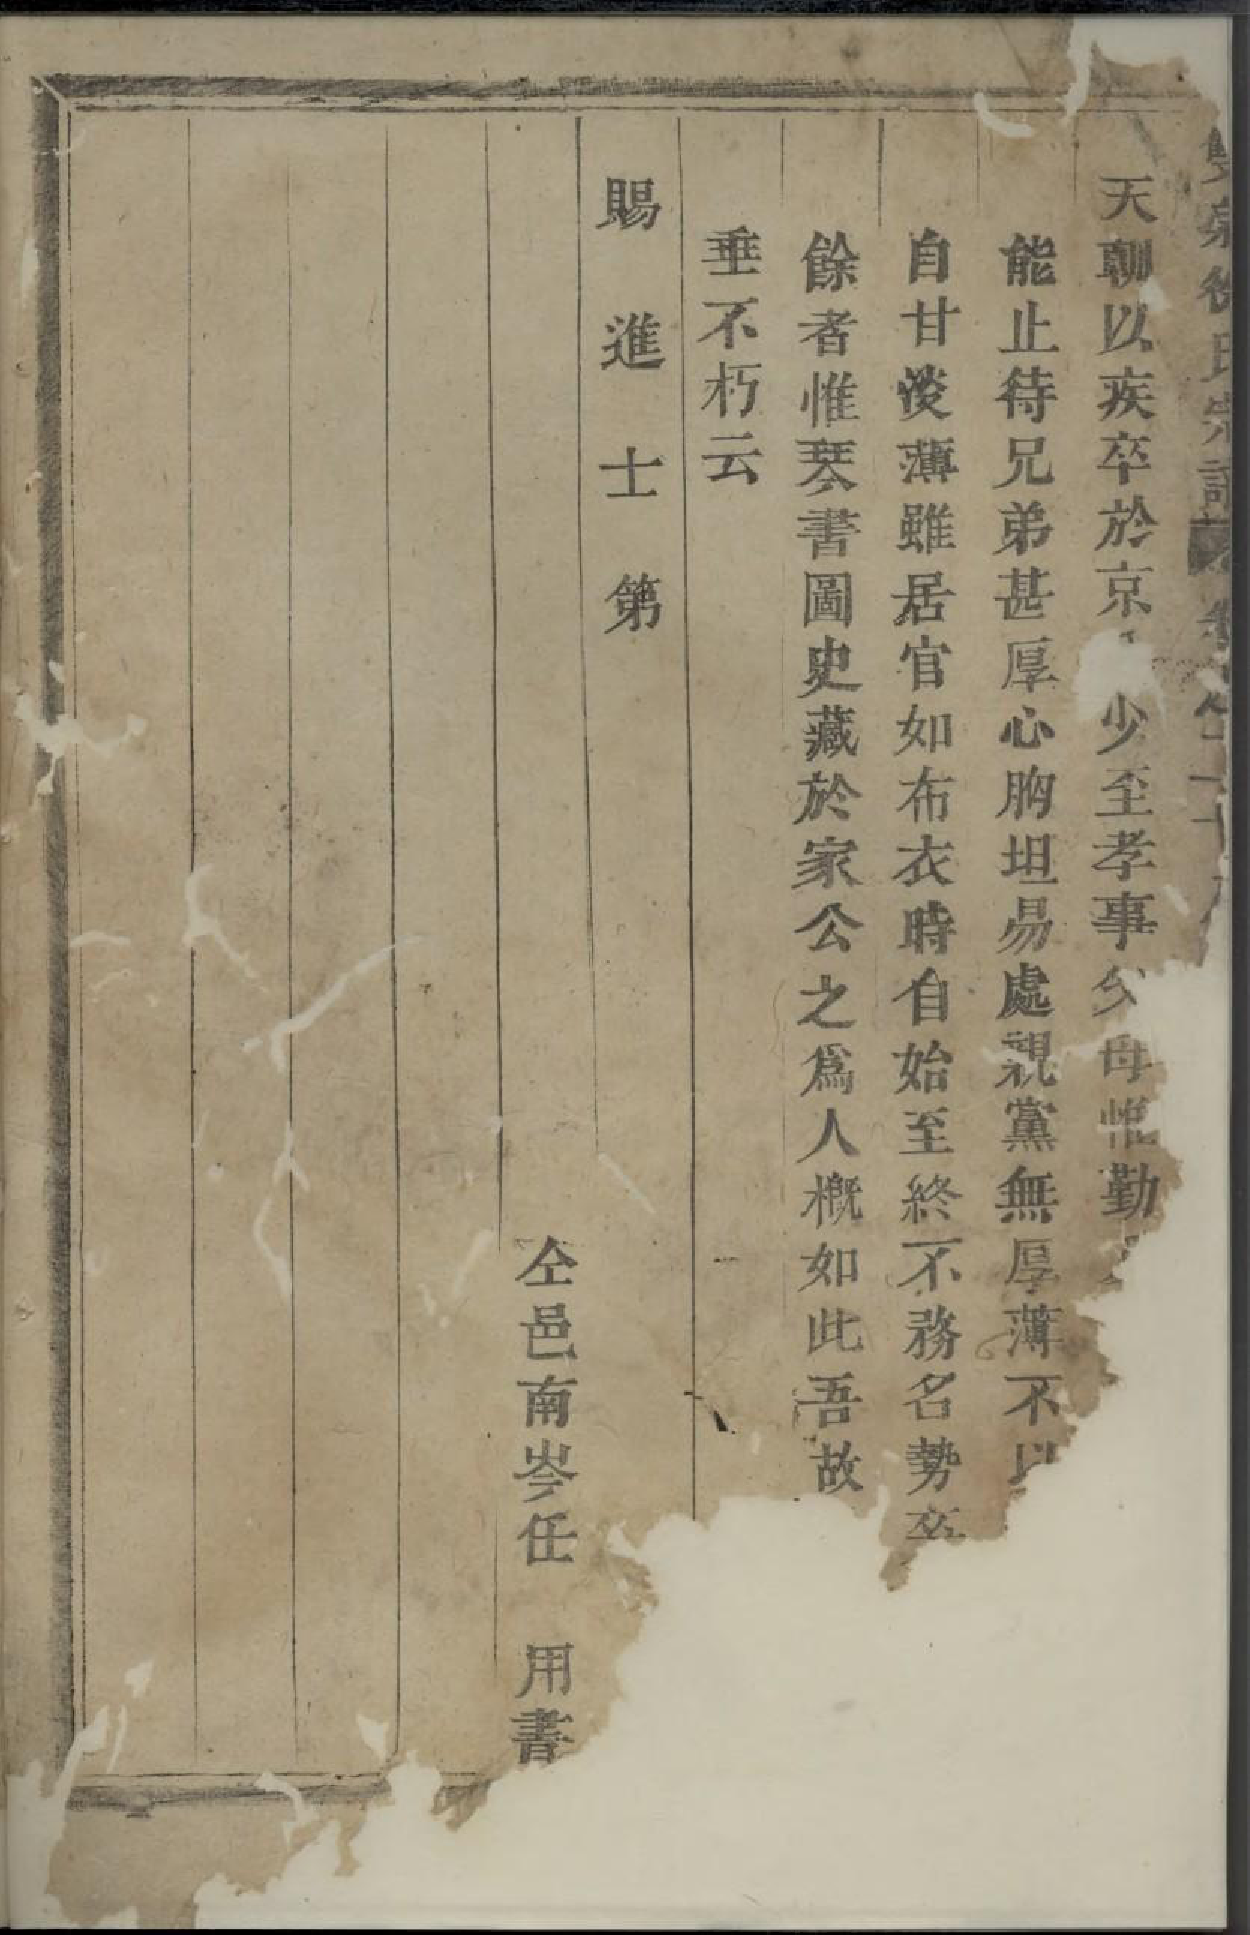 天朝以疾卒於京少至孝事父母惟勤
能止待兄弟甚厚心胸坦易處親黨無厚薄不以
自甘淡薄雖居官如布衣時自始至終不務名勢卒
餘者惟琴書圖史藏於家公之爲人槪如此吾故
垂不朽云
賜進士第
仝邑南岑任 用書